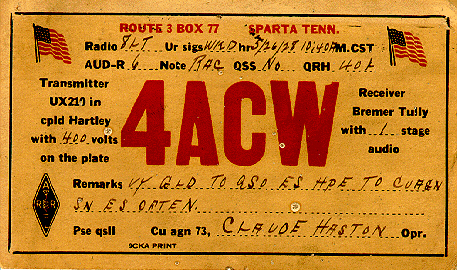 ROUTE 3 BOX 77 SPARTA TENN.
Radio 8LT Ur sigs WKD hr 3/26/28 10:40A M. CST
AUD-R 6 Note RAC QSS NO QRH 40A
Transmitter
UX210 in
cpld Hartley
with 400 volts
on the plate
4ACW
Receiver
Bremer Tully
with 1 stage
audio
Remarks VY GLD TO QSO ES HPE TO CUAGN
SN ES OFTEN.
Pse qsll Cu agn 73, CLAUDE HASTON Opr.
9CKA PRINT